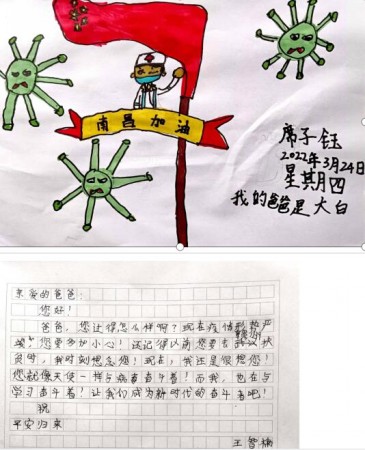 南昌加油
席子钰
2022年3月24日
星期四
我的爸爸是大白
亲爱的爸爸:
您好!
爸爸,您过得怎么样啊?现在疫情形势严
峻,您要多加小心!还记得以前您要去武汉扶
贫时,我时刻想念您!现在,我还是很想您!
您就像天使一样与病毒奋斗着!而我,也在与
学习奋斗着!让我们成为新时代的奋斗者吧!
祝
平安归来
王智楠